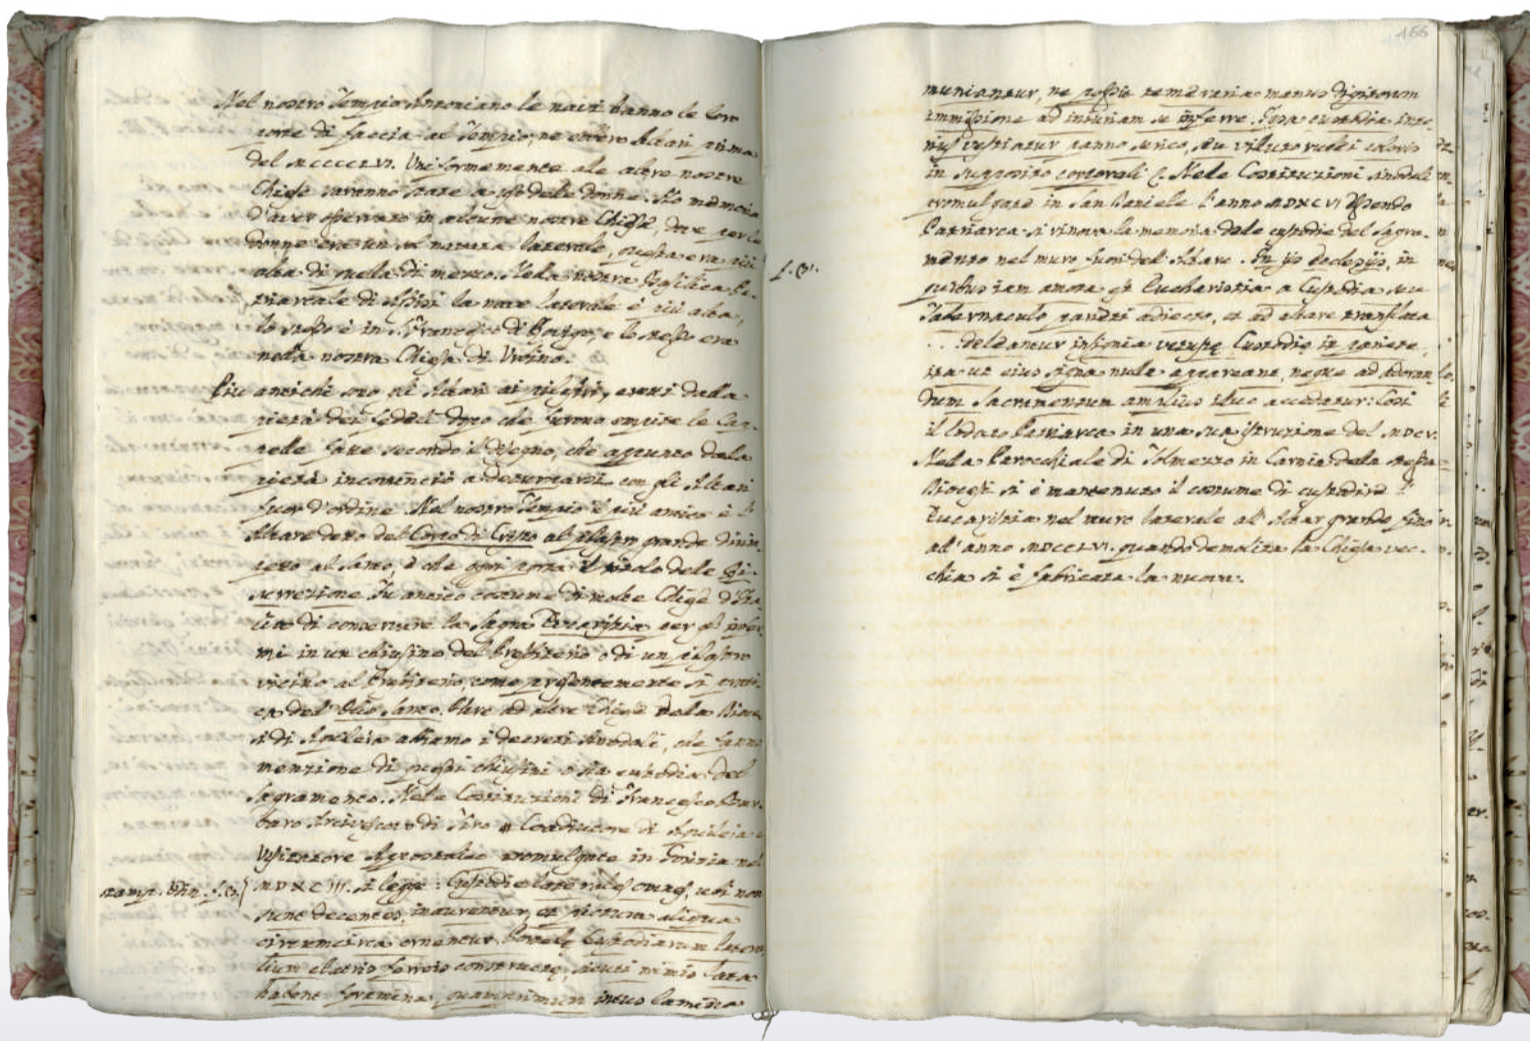 Nel nostro Tempio Antoniano le navi hanno le loro
porte di faccia al Tempio, ne ebbero Altari prima
del MCCCCLVI. Uniformemente ale altre nostre
Chiese saranno state a uso delle donne. Ho memoria
d'aver osservato in alcune nostre Chiese, dove per le
donne era un sol navata laterale, questa era più
alta di quella di mezzo. Nella nostra Basilica Pa-
triarcale di Assisi la nave laterale è più alta,
lo stesso è in S. Francesco di e lo stesso era
nella nostra Chiesa di Urbino.
Più antichi sono gli Altari ai pilastri, eretti dalla
pietà dei fedeli dopo che furono empite le Cap-
pelle fatte secondo il disegno, che appunto dala
pietà incominciò a deturparsi con gli Altari
fuor d'ordine. Nel nostro Tempio il più antico è l'
Altare detto del Corpo di Cristo al pilastro grande dirim-
peto al Santo, e che oggi porta il titolo dele
Fu antico costume di molte Chiese d'Ita
lia di conservare la Sagra Eucaristia per gl' infer-
mi in un chiusino del Presbiterio o di un pilastro
vicino al Presbiterio, come presentemente si prati-
ca del' Olio Santo. Oltre ad altre Chiese dela Dioce
si di Aquileia abbiamo i decreti Sinodali, che fanno
menzione di questi chiusini o sia custodia del
Sagramento. Nele Costituzioni di Francesco Bar-
baro Arcivescovo di Tiro e Coadiutore di Aquileia e
Visitatore Apostolico promulgate in Gorizia nel
stamp. Udin. f. 61. MDXCIII. si legge: Custodie laterales omnes, ubi non
sunt decentes, inaurentur, et pictura aliqua
circumcirca ornentur. Portele Custodiarum latera
lium clatris ferreis constructe, sicuti nimio lata
habent foramina, quamprimum intus lamina
166
muniantur, ne possit temeraria manus digitorum
immissione ad iniuriam se inferre. Ipsa custodia inte-
rius vestiatur panno serico, seu viluto rubei coloris
in supposito cortorali &. Nele Costituzioni Sinodali
promulgate in San Daniele l'anno MDXCVI essendo
Patriarca si rinova la memoria dele custodie del Sagra-
mento nel muro fuori dell' Altare. In iis Ecclesijs, in
quibus iam amota est Eucharistia a Custodia seu
Tabernaculo parieti adiecto, et ad altare translata
. . . deleantur insignia vetustę Custodię in pariete,
ita ut eius signa nulla appareant, neque ad adoran-
dum Sacramentum amplius illuc accedatur: Così
il lodato Patriarca in una sua istruzione del MDCV.
Nella Parocchiale di Tolmezzo in Carnia dela stessa
Diocesi si è mantenuto il costume di custodire l'
Eucaristia nel muro laterale al' Altar grande fino
al' anno MDCCLVI. quando demolita la Chiesa vec-
chia si è fabricata la nuova.